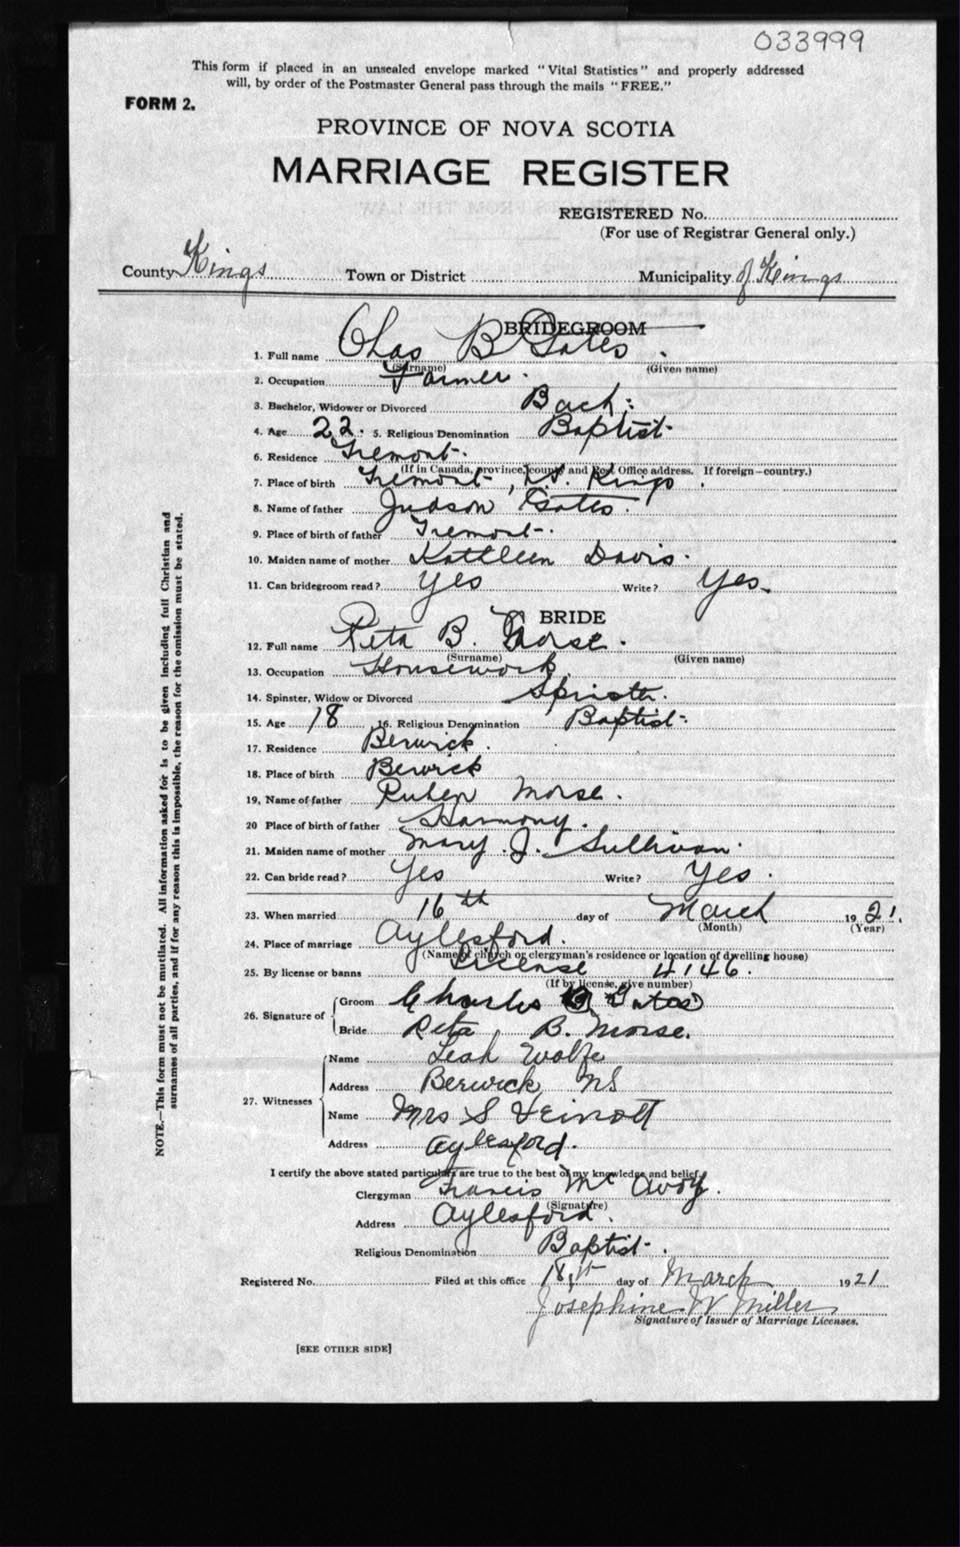 033999
This form if placed in an unsealed envelope marked "Vital Statistics" and properly addressed
will, by order of the Postmaster General pass through the mails "FREE."
FORM 2.
PROVINCE OF NOVA SCOTIA
MARRIAGE REGISTER
REGISTERED No.
(For use of Registrar General only.)
County Kings Town or District Municipality of Kings
BRIDEGROOM
1. Full name Chas B Gates.
(Surname) (Given name)
2. Occupation Farmer.
3. Bachelor, Widower or Divorced Bach:
4. Age 22. 5. Religious Denomination Baptist
6. Residence Tremont.
(If in Canada, province, county and Post Office address. If foreign—country.)
7. Place of birth Tremont, Kings.
8. Name of father Judson Gates.
9. Place of birth of father Tremont.
10. Maiden name of mother Kathleen Davis.
11. Can bridegroom read? Yes Write? Yes.
BRIDE
12. Full name Reta B. Morse.
(Surname) (Given name)
13. Occupation Housework.
14. Spinster, Widow or Divorced Spinster.
15. Age 18 16. Religious Denomination Baptist.
17. Residence Berwick.
18. Place of birth Berwick
19. Name of father Ruben Morse.
20 Place of birth of father Harmony.
21. Maiden name of mother Mary. J. Sullivan.
22. Can bride read? Yes Write? Yes.
23. When married 16th day of March 1921.
(Month) (Year)
24. Place of marriage Aylesford.
(Name of church or clergyman's residence or location of dwelling house)
25. By license or banns License 4146.
(If by license, give number)
26. Signature of Groom Charles B Gates
Bride Reta B. Morse.
27. Witnesses
Name Leah Wolfe
Address Berwick NS
Name Mrs S Veinott
Address Aylesford.
I certify the above stated particulars are true to the best of my knowledge and belief.
Clergyman Francis Mc Avoy.
(Signature)
Address Aylesford.
Religious Denomination Baptist.
Registered No. Filed at this office 18 day of March 1921
Josephine W Miller
Signature of Issuer of Marriage Licenses.
[SEE OTHER SIDE]
NOTE.—This form must not be mutilated. All information asked for is to be given including full Christian and
surnames of all parties, and if for any reason this is impossible, the reason for the omission must be stated.